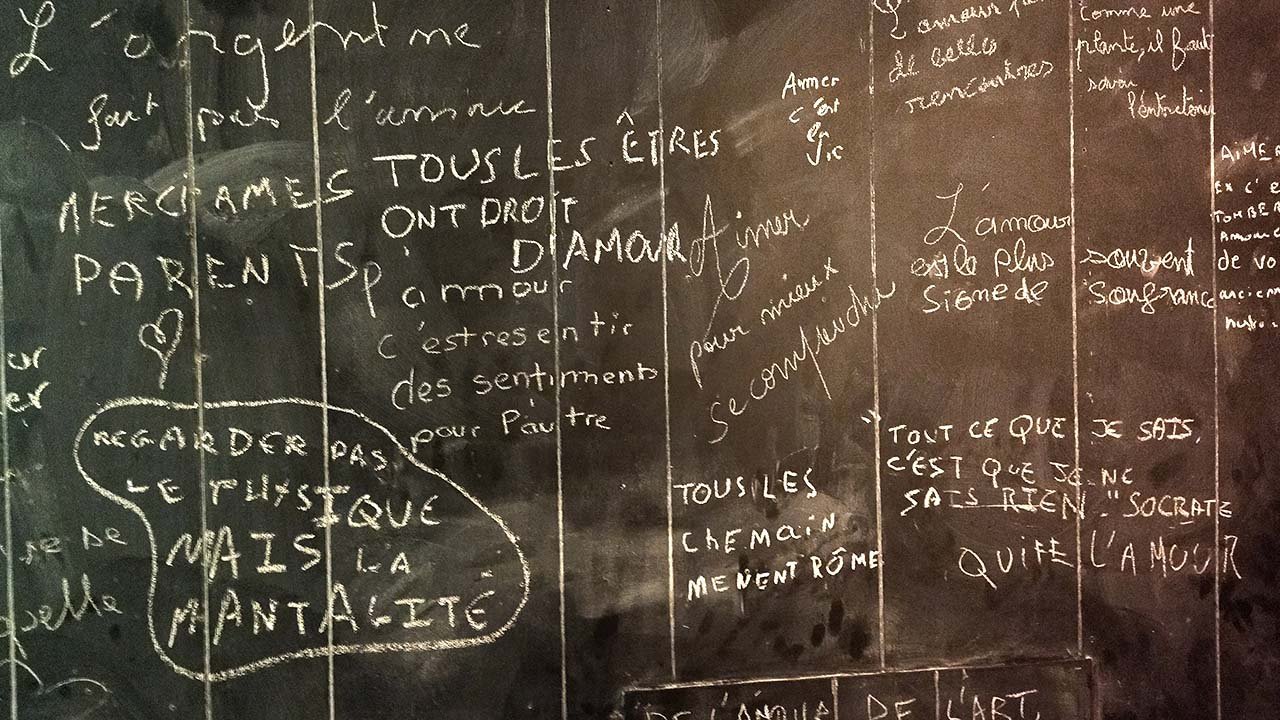 L'argent ne
fait pas l'amour
MERCI AMES
PARENTS
TOUS LES ÊTRES
ONT DROIT
D'AMOUR
l'amour
c'est resentir
des sentiments
pour l'autre
REGARDER PAS
LE PHYSIQUE
MAIS LA
MANTALITÉ
Aimer
c'est
la
vie
Aimer
pour mieux
se comprendre
TOUS LES
CHEMAIN
MENENT RÔME
de belles
rencontres
comme une
plante, il faut
savoir
l'entretenir
L'amour
est le plus souvent
signe de souffrance
AIMER
EX C'E
TOMBER
AMOU
de vo
ancien
TOUT CE QUE JE SAIS,
C'EST QUE JE NE
SAIS RIEN." SOCRATE
QUIFE L'AMOUR
ur
er
se de
DE L'ART,